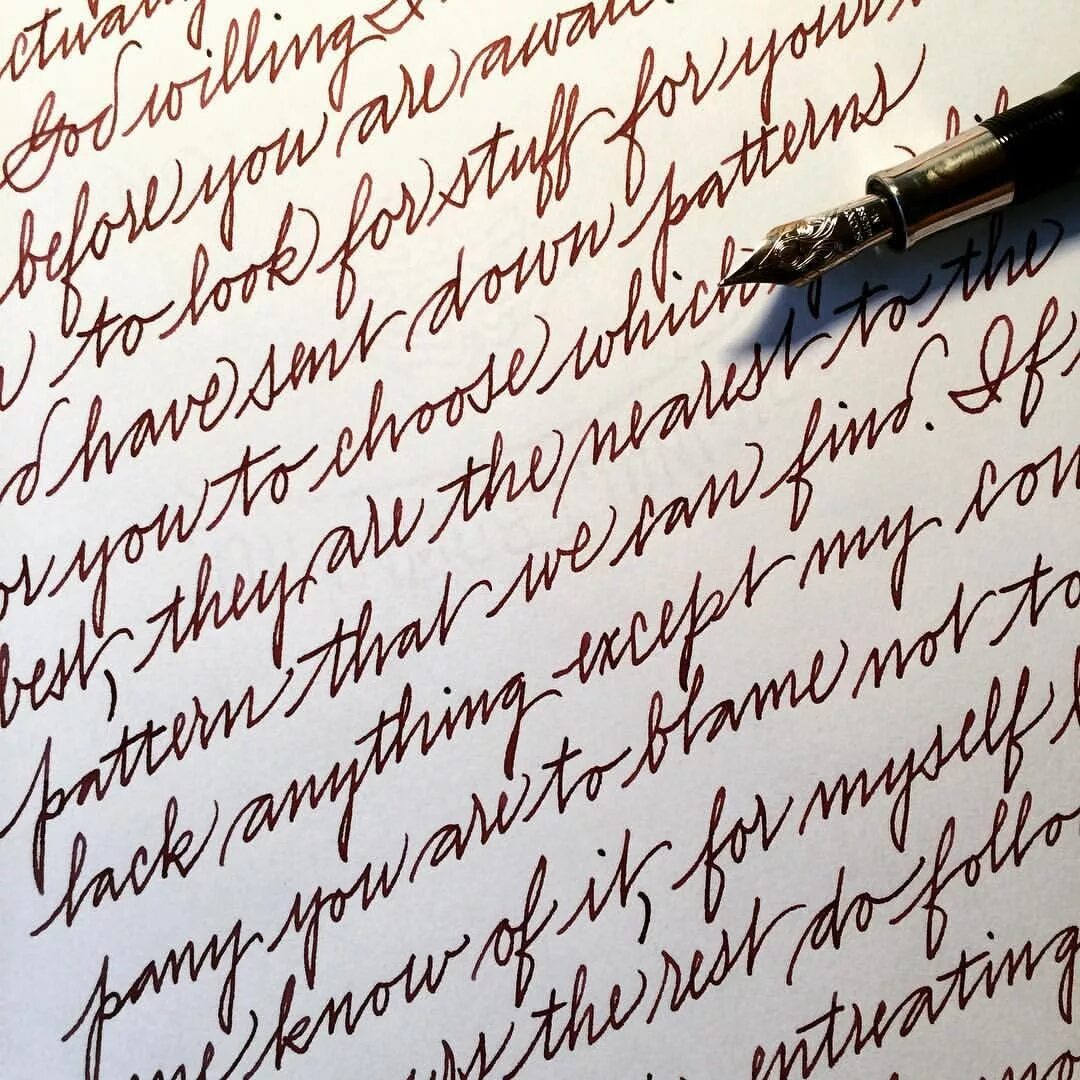 God willing I
before you are
to look for stuff for
have sent down patterns
you to choose which
best, they are the nearest to the
pattern that we can find. If
lack anything except my com
pany you are to blame not to
know of it, for myself
the rest do
entreating